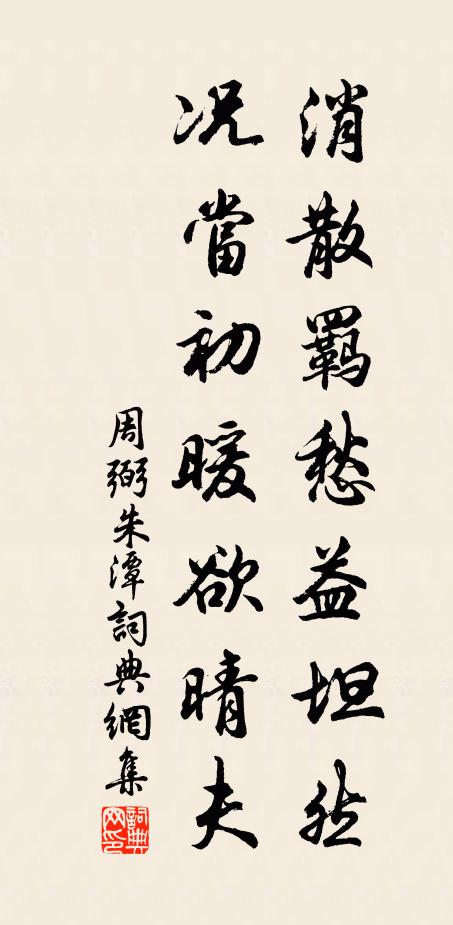 消散羁愁益坦然
况當初暖欲晴天
周弼朱潭詞典網集
詞典網印